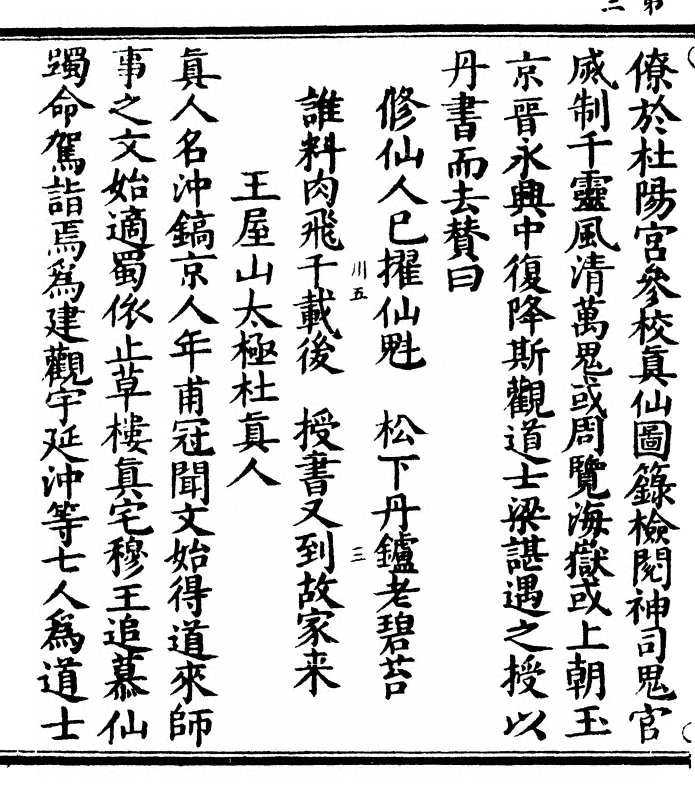 僚於杜陽宮參校真仙圖籙檢閱神司鬼官
咸制千靈風清萬鬼或周覽海嶽或上朝玉
京晉永興中復降斯觀道士梁諶遇之授以
丹書而去贊曰
修仙人已擢仙魁　松下丹鑪老碧苔
誰料肉飛千載後　授書又到故家来
川五
三
王屋山太極杜真人
真人名沖鎬京人年甫冠聞文始得道來師
事之文始適蜀依止草樓真宅穆王追慕仙
躅命駕詣焉為建觀宇延沖等七人為道士